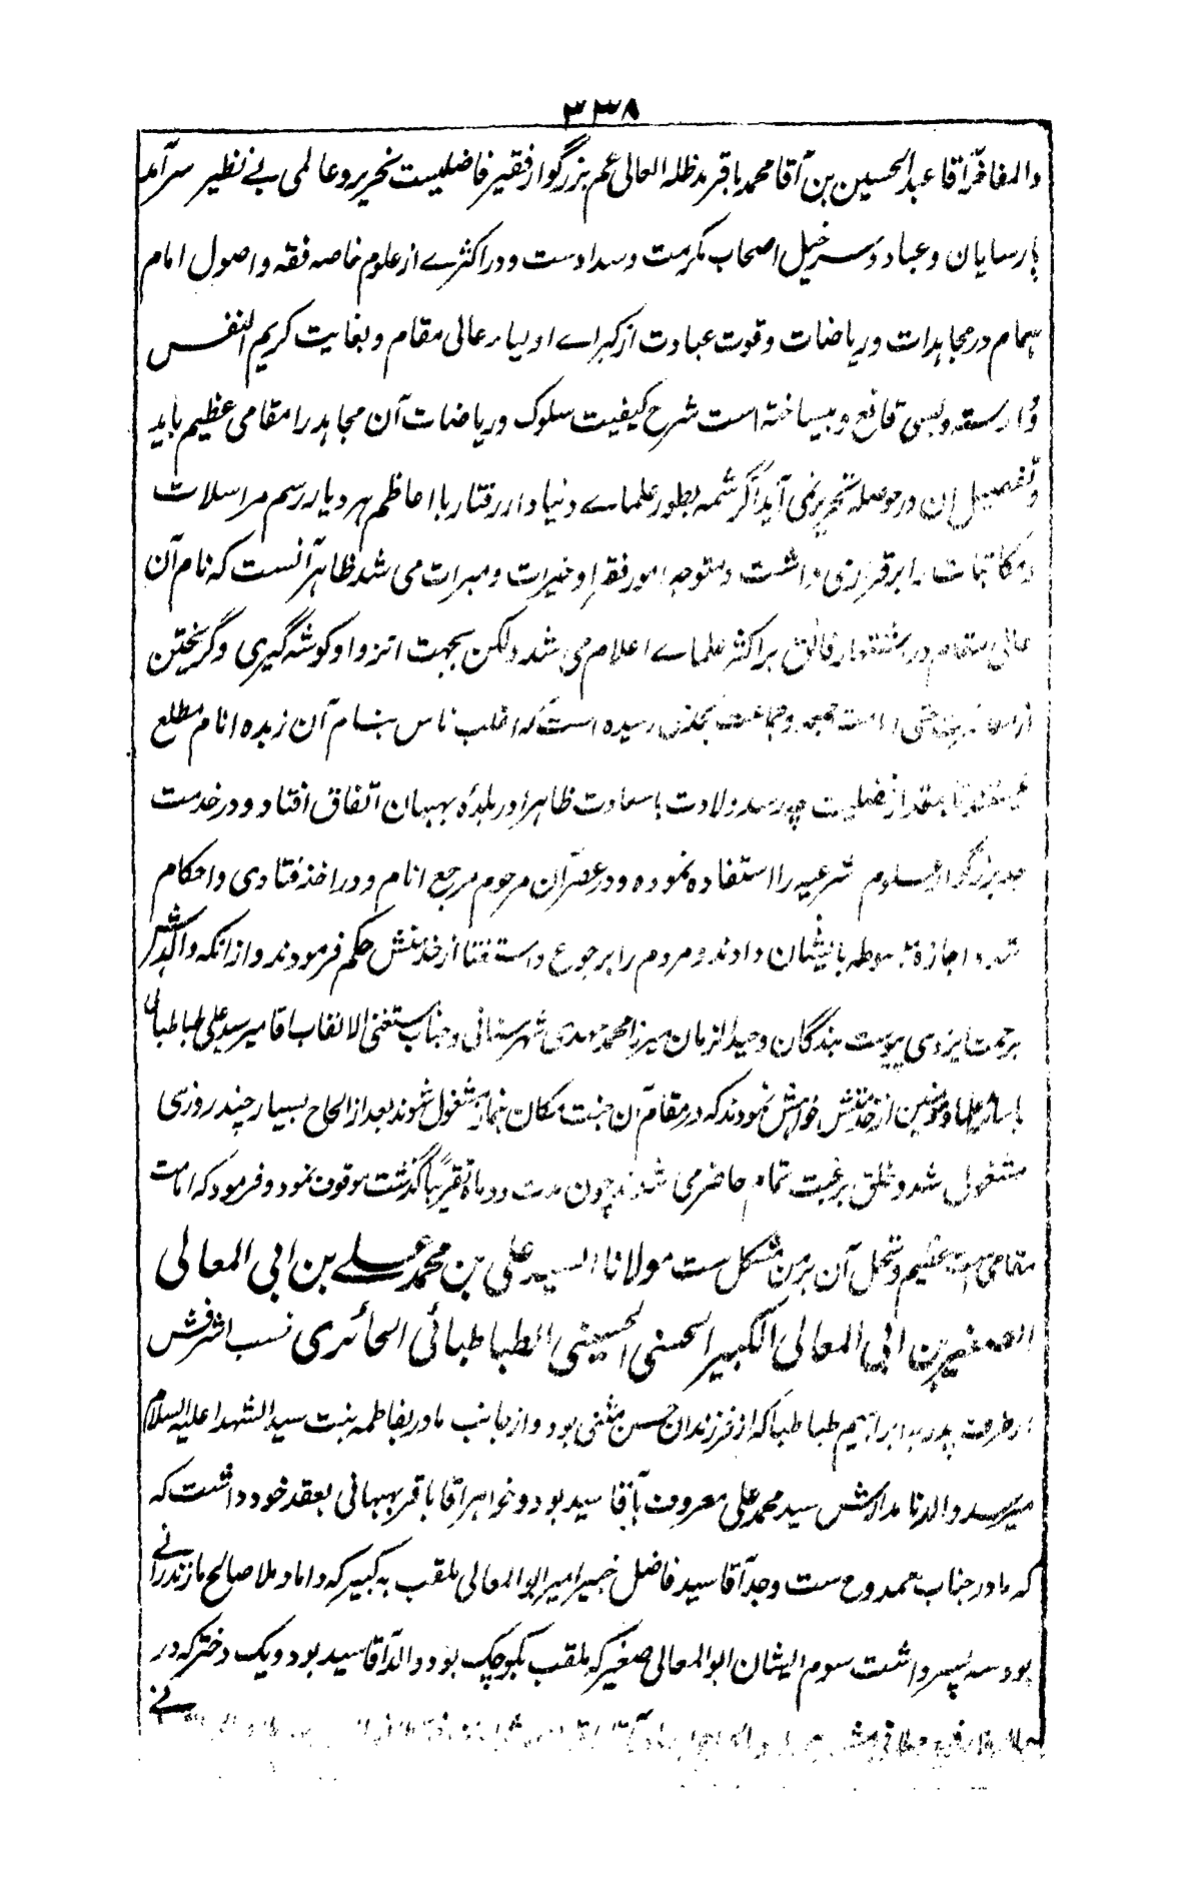 ٣٣٨
والمفاخر آقا عبد الحسین بن آقا محمد باقر مدظله العالی عم بزرگوار فقیر فاضلیست نحریر و عالمی بے نظیر سرآمد
پارسایان وعباد وسرخیل اصحاب مکرمت وسدادست ودر اکثرے از علوم خاصه فقه و اصول امام
همام در مجاہدات وریاضات وقوت عبادت از کبراے اولیاء عالی مقام و بغایت کریم النفس
وارسته وبسی قانع و بیساخته است شرح کیفیت سلوک وریاضات آن مجاہد را مقامی عظیم باید
وتفصیل آن در حوصله تحریر نمی آید اگر شمه بطور علماے دنیا دار رفتار با اعاظم ہر دیار رسم مراسلات
ومکاتبات را برقرار می داشت ومتوجه امور فقرا و خیرات و مبرات می شد ظاہر آنست که نام آن
عالی مقام در اشتهار فائق بر اکثر علماے اعلام می شد ولکن بجهت انزوا وگوشه گیری وگریختن
از حتی امامت جمعه وجماعت بحدی رسیده است که اغلب ناس بنام آن زبده انام مطلع
از فضلیت چه رسد ولادت با سعادت ظاہرا در بلدۀ بهبهان اتفاق افتاد و در خدمت
جد بزرگوار علوم شرعیه را استفاده نموده ودر عصر آن مرحوم مرجع انام و در اخذ فتاوی و احکام
شده اجازۀ مبسوطه بایشان دادند و مردم را برجوع واستفتا از خدمتش حکم فرمودند و از انکه والدش
برحمت ایزدی پیوست بندگان وحید الزمان میرزا محمد مہدی شهرستانی وجناب مستغنی الالقاب آقا میر سید علی طباطبائی
با سائر علما ومؤمنین از خدمتش خواہش نمودند که در مقام آن جنت مکان بنماز مشغول شوند بعد از الحاح بسیار چند روزی
مشغول شد وخلق برغبت تمام حاضر می شدند چون مدت دو ماه تقریباً گذشت موقوف نمود و فرمود که امامت
مقامی است عظیم و تحمل آن بر من مشکل ست مولانا السید علی بن محمد علے بن ابی المعالی
الصغیر بن ابی المعالی الکبیر الحسنی الحسینی الطباطبائی الحائری نسب اشرفش
از طرف پدر به ابراہیم طباطبا که از فرزندان حسن مثنی بود واز جانب مادر بفاطمه بنت سید الشهدا علیه السلام
میرسد والد نامدارش سید محمد علی معروف بآقا سید بود وخواہر آقا باقر بهبهانی بعقد خود داشت که
که مادر جناب ممدوح ست وجد آقا سید فاضل خبیر امیر ابو المعالی ملقب به کبیر که داماد ملا صالح مازندرانے
بود سه پسر داشت سوم ایشان ابو المعالی صغیر که ملقب بکوچک بود والد آقا سید بود ویک دختر که در